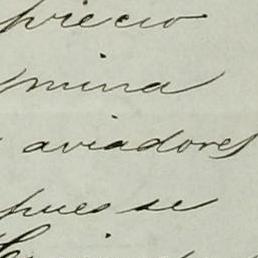 precio
mina
aviadores
pues se